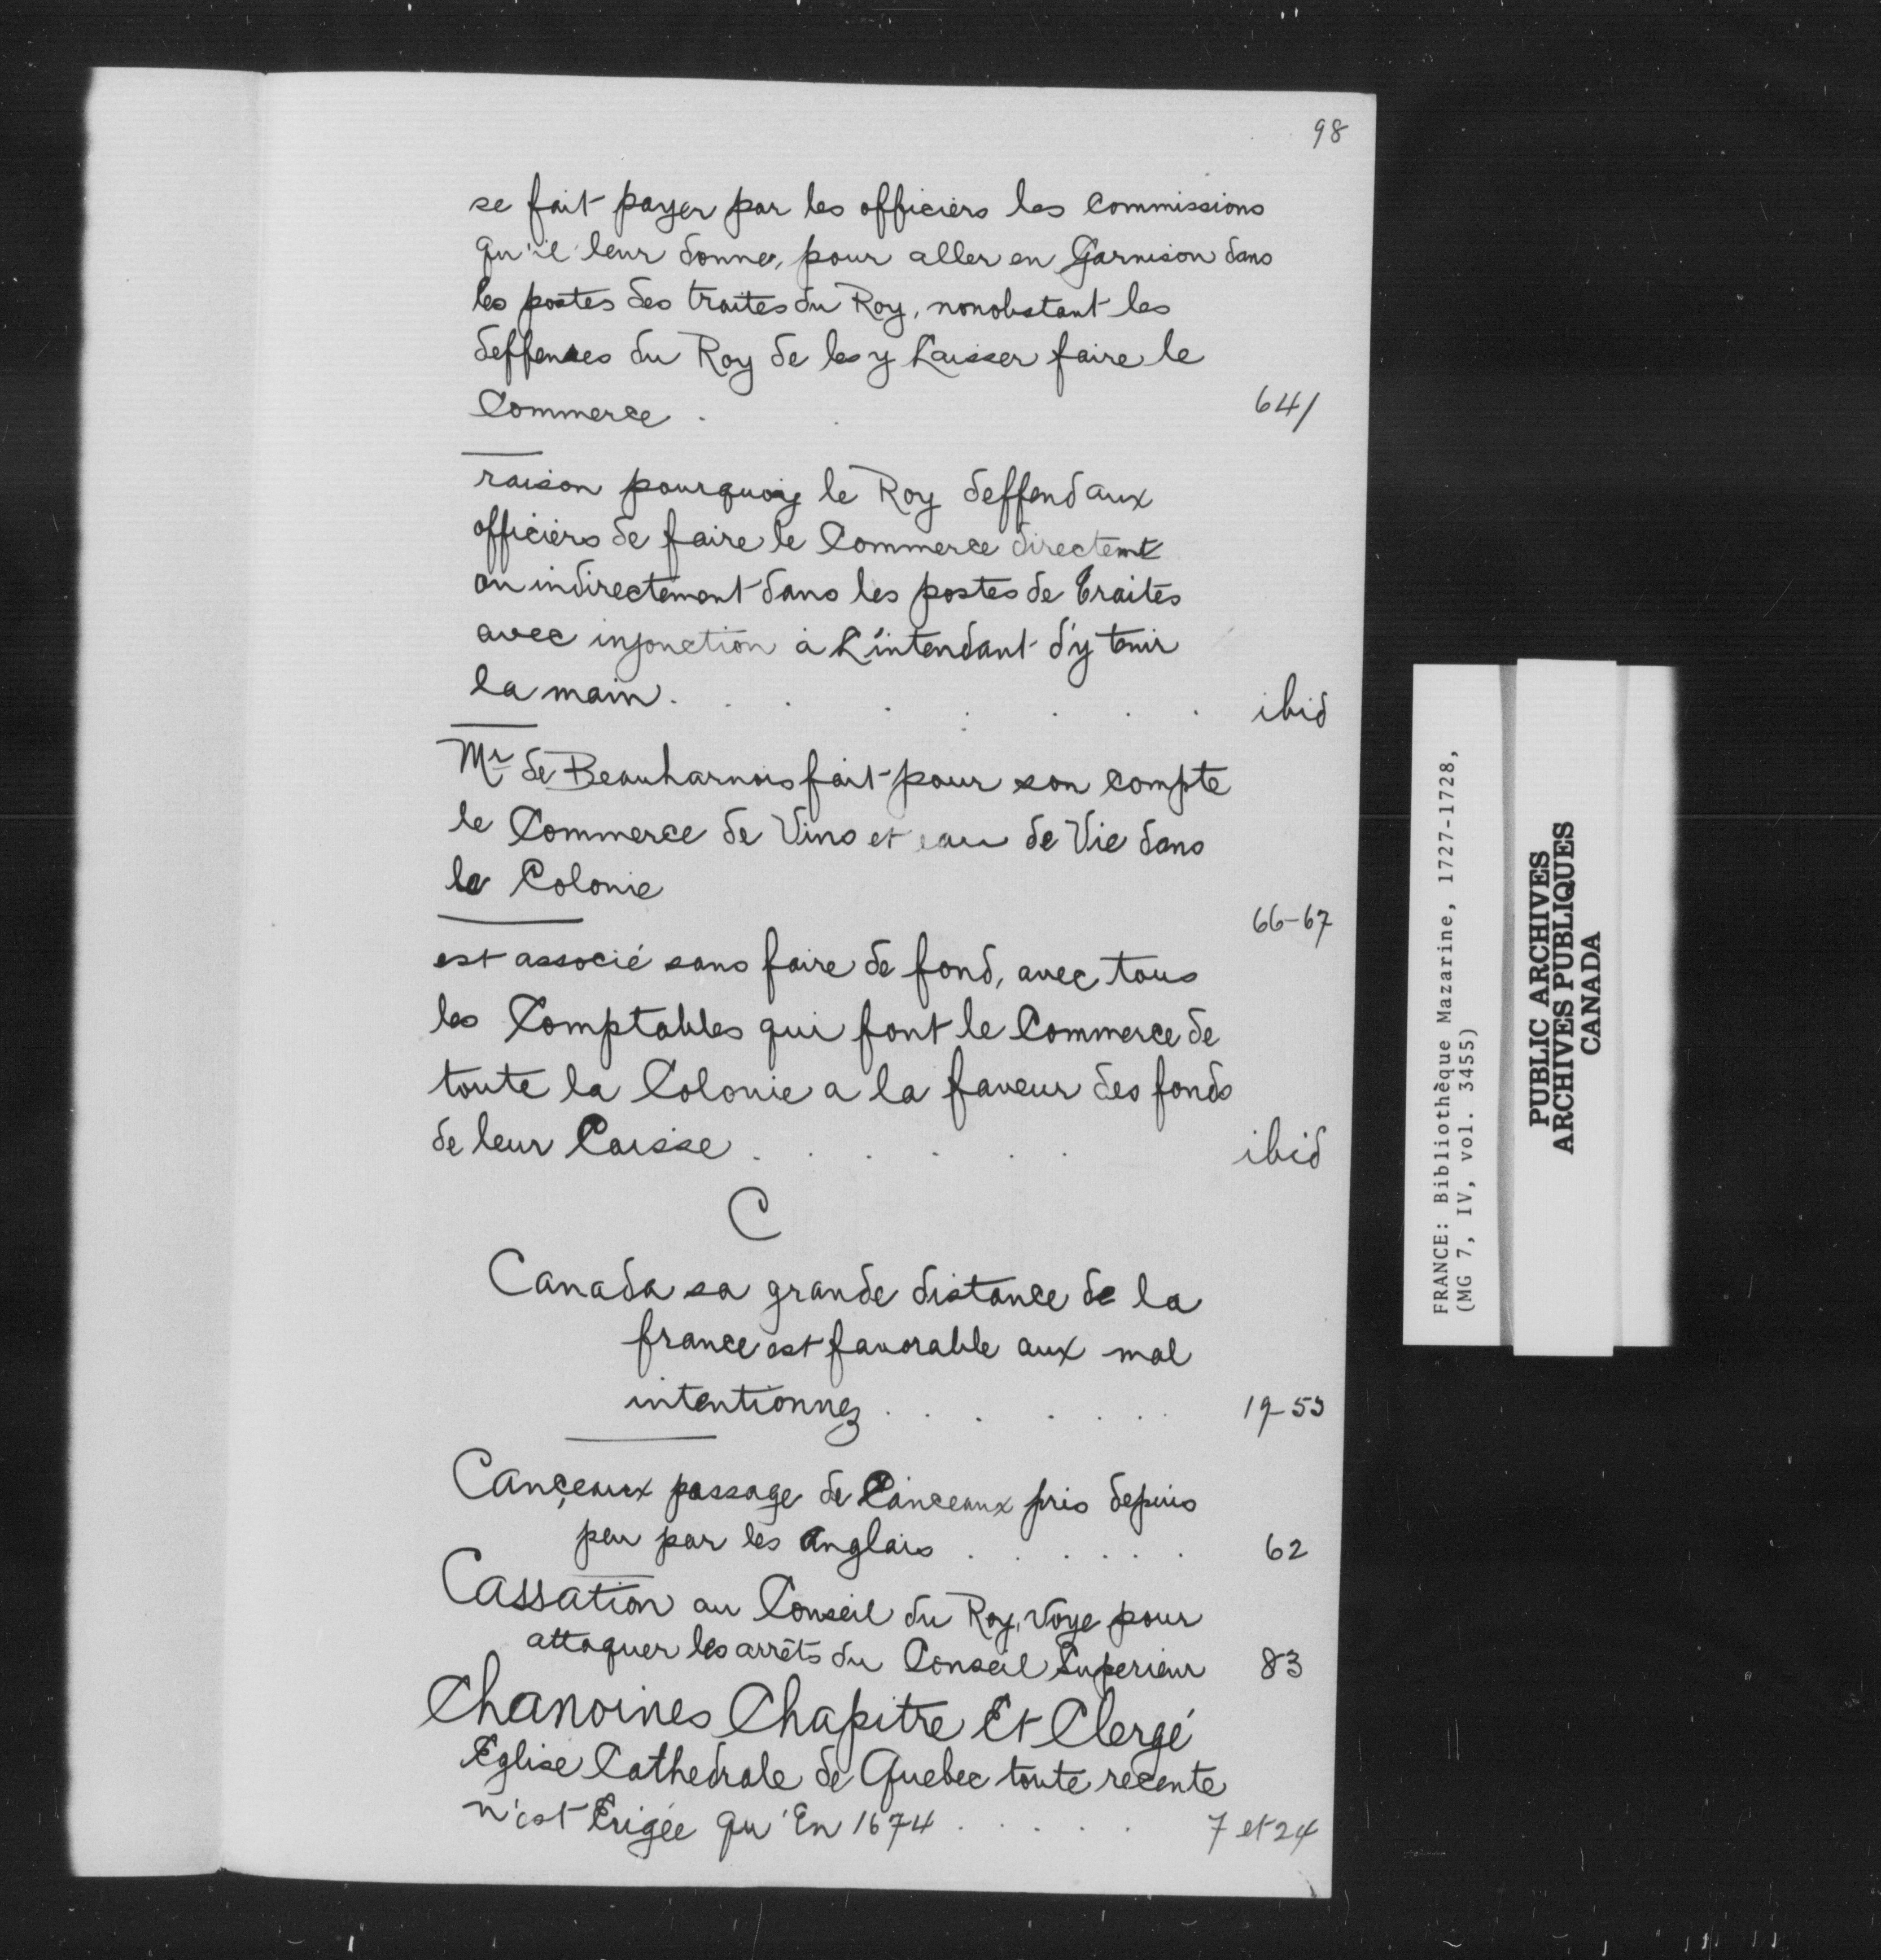 98
se fait payer par les officiers les Commissions
qu'il leur donne, pour aller en Garnison dans
les postes des traites du Roy, nonobstant les
deffenses du Roy de les y Laisser faire le
Commerce . 64/
raison pourquoy le Roy deffend aux
officiers de faire le Commerce directemt
ou indirectement dans les postes de Traites
avec injonction à L'intendant d'y tenir
la main. . . . . . . . ibid
Mr de Beauharnois fait pour son compte
le Commerce de Vins et eau de Vie dans
la Colonie
66-67
est associé sans faire de fond, avec tous
les Comptables qui font le Commerce de
toute la Colonie a la faveur des fonds
de leur Caisse . . . . . . ibid
C
Canada sa grande distance de la
france est favorable aux mal
intentionnez . . . . . . . 19-53
Cançeaux passage de Canceaux pris depuis
peu par les Anglais . . . . . . 62
Cassation au Conseil du Roy, voye pour
attaquer les arrêts du Conseil Superieur 83
Chanoines Chapitre Et Clergé
Eglise Cathedrale de Quebec toute recente
n'est Erigée qu'En 1674 . . . . . 7 et 24
FRANCE: Bibliothèque Mazarine, 1727-1728,
(MG 7, IV, vol. 3455)
PUBLIC ARCHIVES
ARCHIVES PUBLIQUES
CANADA